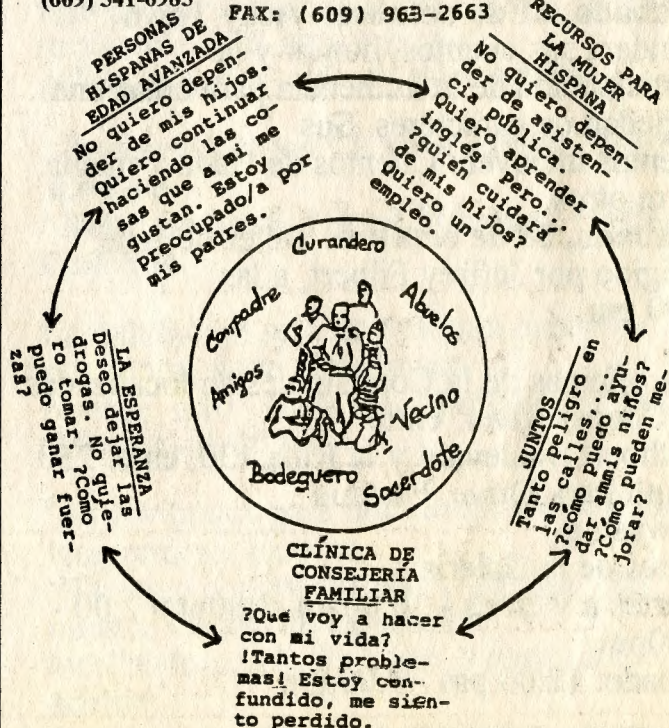 (609)
FAX: (609) 963-2663
PERSONAS
HISPANAS DE
EDAD AVANZADA
No quiero depen-
der de mis hijos.
Quiero continuar
haciendo las co-
sas que a mi me
gustan. Estoy
preocupado/a por
mis padres.
RECURSOS PARA
LA MUJER
HISPANA
No quiero depen-
der de asisten-
cia pública.
Quiero aprender
inglés. Pero...
?quién cuidará
de mis hijos?
Quiero un
empleo.
Curandero
Compadre
Abuelos
Amigos
Vecino
Bodeguero
Sacerdote
LA ESPERANZA
Deseo dejar las
drogas. No quie-
ro tomar. ?Como
puedo ganar fuer-
zas?
JUNTOS
Tanto peligro en
las calles,...
?cómo puedo ayu-
dar ammis niños?
?Como pueden me-
jorar?
CLÍNICA DE
CONSEJERÍA
FAMILIAR
?Qué voy a hacer
con mi vida?
!Tantos proble-
mas! Estoy con-
fundido, me sien-
to perdido.